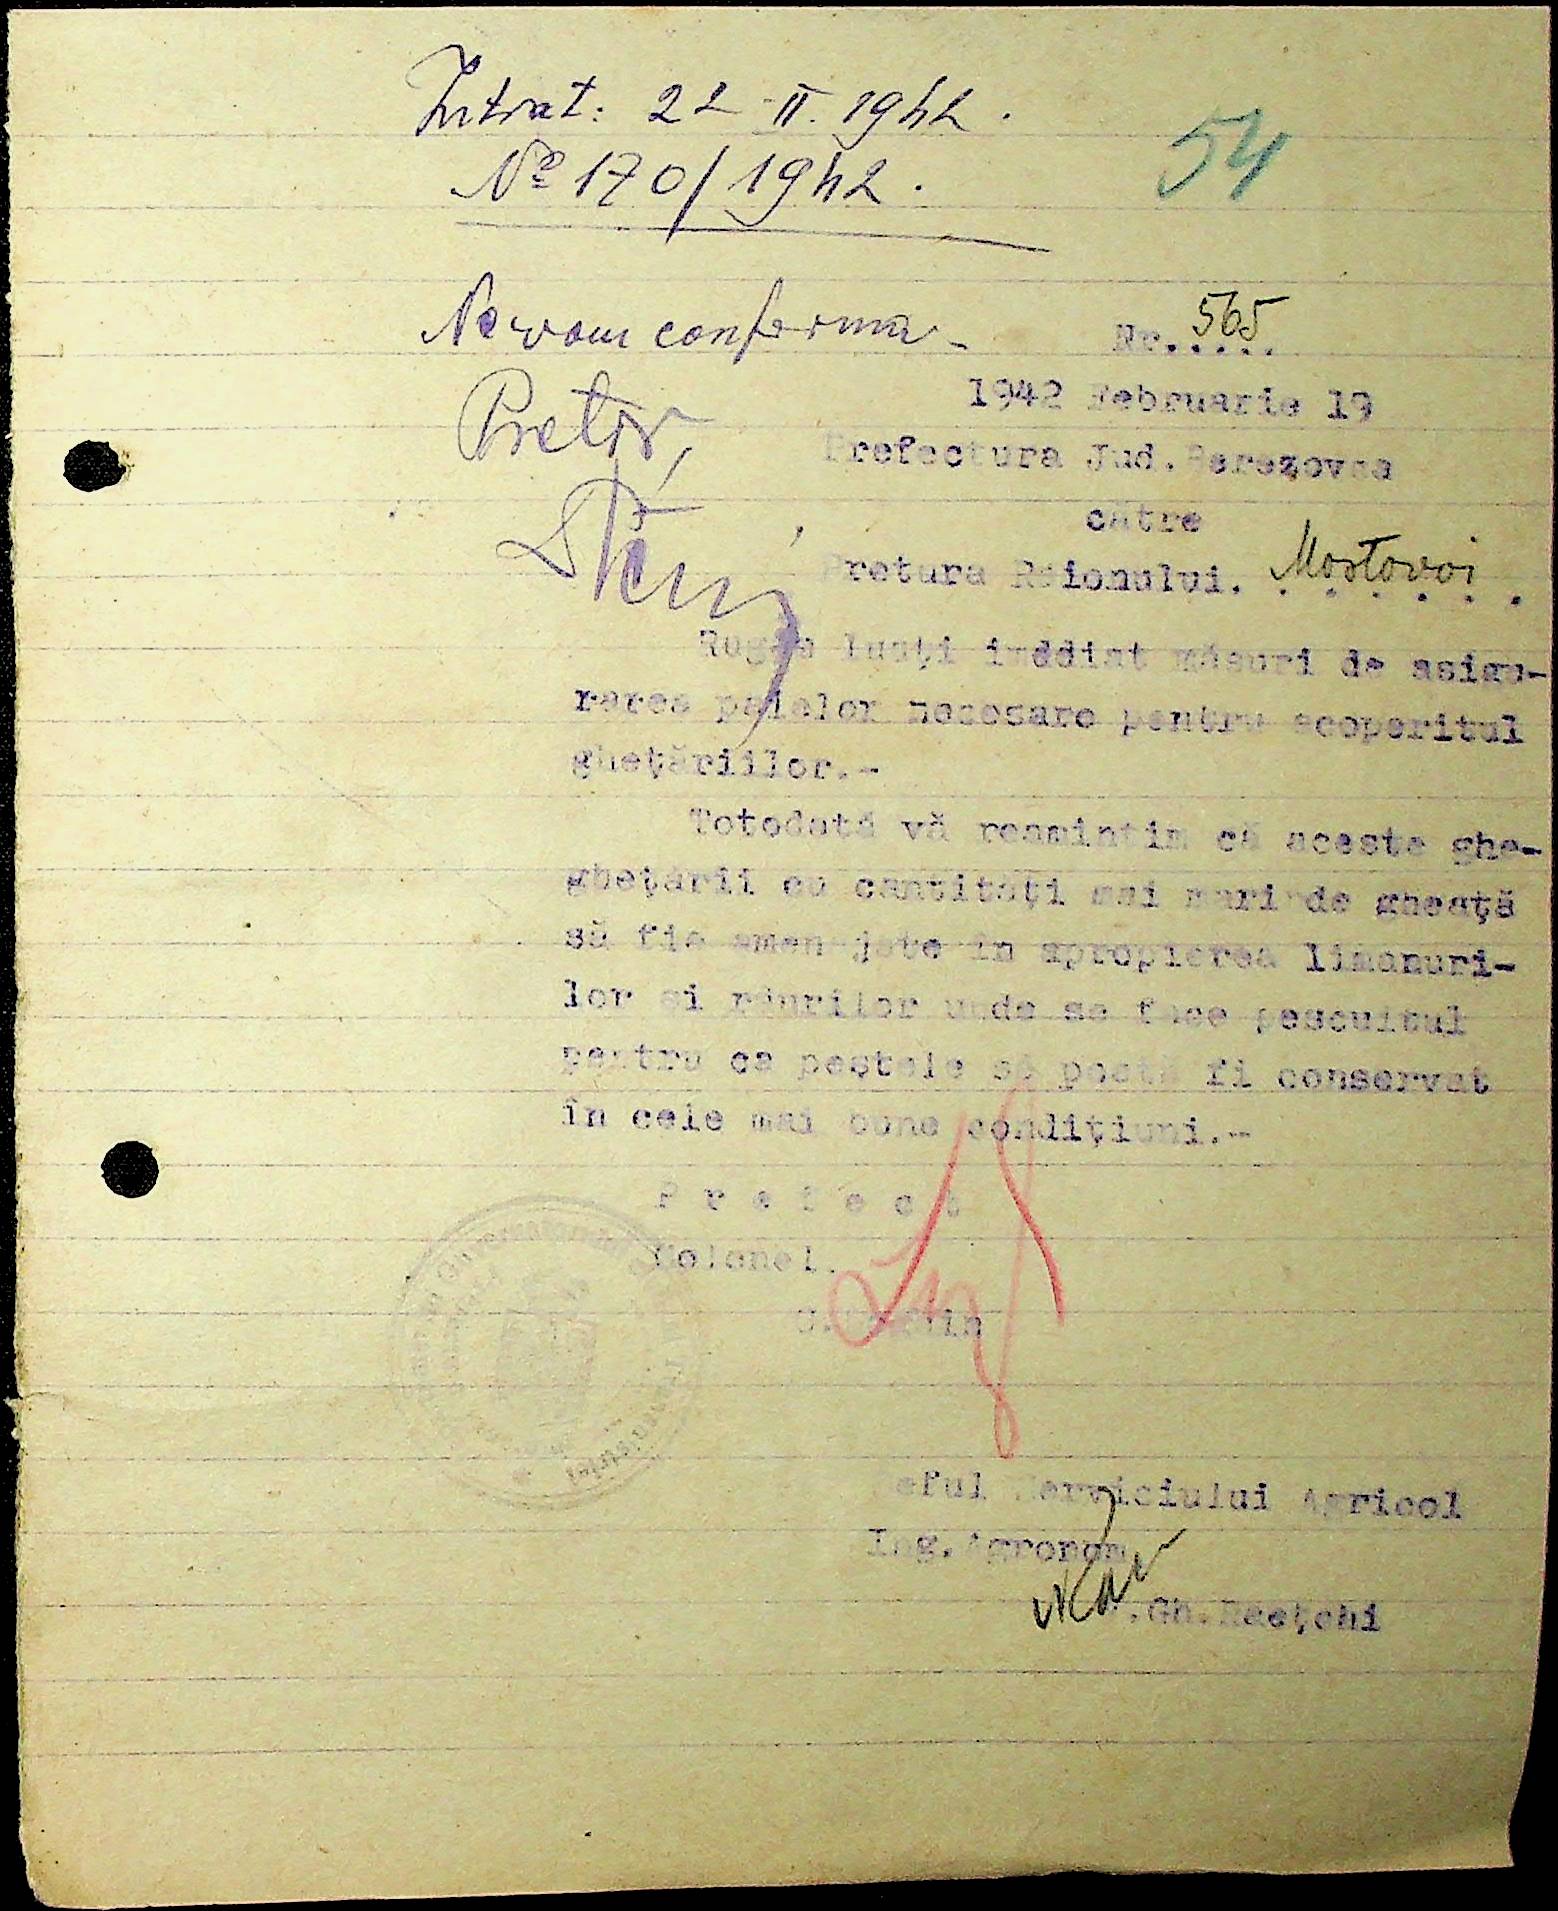 Intrat: 22-II.1942.
54
№ 170/1942.
Ne vom conforma
Nr. 565
1942 Februarie 19
Pretor,
Prefectura Jud. Berezovca
către
Pretura Raionului. Mostovoi
Rugăm luați imediat măsuri de asigu-
rarea paielor necesare pentru acoperitul
ghețăriilor.-
Totodată vă reamintim că aceste ghe-
ghețării cu cantități mai mari de gheață
să fie amenajate în apropierea limanuri-
lor și râurilor unde se face pescuitul
pentru ca peștele să poată fi conservat
în cele mai bune condițiuni.-
Prefect
Colonel.
Șeful Serviciului Agricol
Ing. Agronom
Gh.